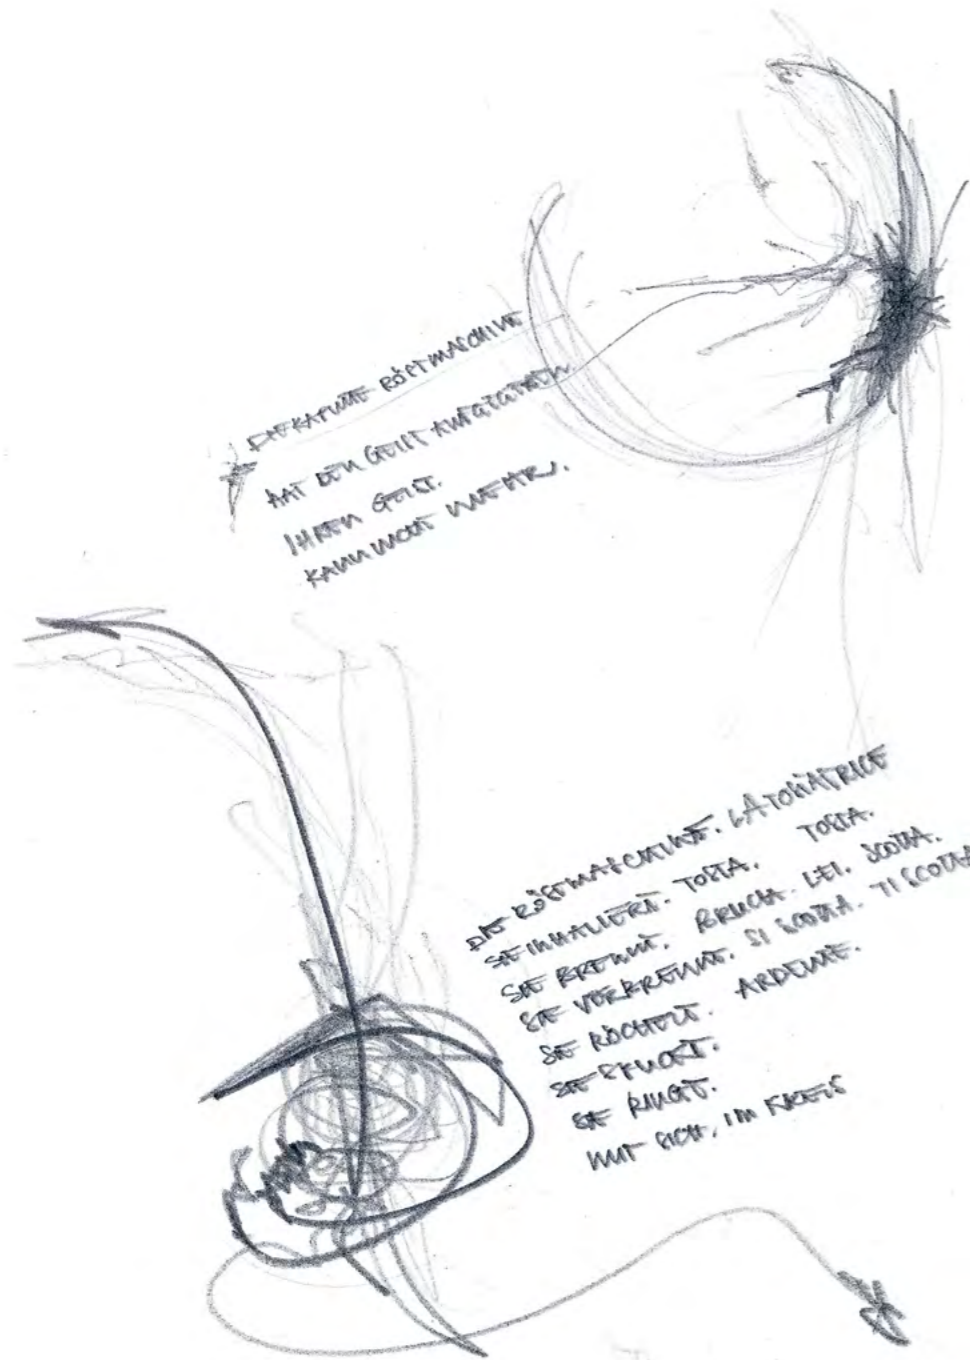 DIE KAPUTTE RÖSTMASCHINE
HAT DEN GEIST AUFGEGEBEN.
IHREN GEIST.
KANN NICHT MEHR.
DIE RÖSTMASCHINE. LA TOSTATRICE
SIE INHALIERT. TOSTA. TOSTA.
SIE BRENNT. BRUCIA. LEI. SCOTTA.
SIE VERBRENNT. SI SCOTTA. TI SCOTTA
SIE RÖCHELT. ARDENTE.
SIE SPUCKT.
SIE RINGT.
MIT SICH, IM KREIS